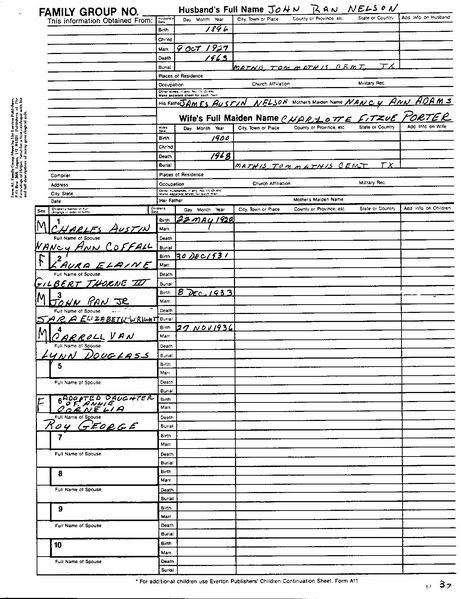 FAMILY GROUP NO. Husband's Full Name JOHN RAN NELSON
This Information Obtained From: Husband's Data Day Month Year City, Town or Place County or Province, etc. State or Country Add. Info on Husband
Birth 1896
Chr'nd
Marr. 9 OCT 1927
Death 1963
Burial MATHIS, TOM MATHIS CEMT, TX
Places of Residence
Occupation Church Affiliation Military Rec.
His Father JAMES AUSTIN NELSON Mother's Maiden Name NANCY ANN ADAMS
Wife's Full Maiden Name CHARLOTTE FITZUE PORTER
Wife's Data Day Month Year City, Town or Place County or Province, etc. State or Country Add. Info on Wife
Birth 1900
Chr'nd
Death 1968
Burial MATHIS, TOM MATHIS CEMT TX
Compiler Places of Residence
Address Occupation Church Affiliation Military Rec.
City, State
Date Her Father Mother's Maiden Name
Sex Day Month Year City, Town or Place County or Province, etc. State or Country Add. Info on Children
M 1 Birth 22 MAY 1928
CHARLES AUSTIN Marr.
Full Name of Spouse Death
NANCY ANN COFFALL Burial
F 2 Birth 30 DEC 1931
LAURA ELAINE Marr.
Full Name of Spouse Death
GILBERT THORNE III Burial
M 3 Birth 8 DEC. 1933
JOHN RAN JR Marr.
Full Name of Spouse Death
SARA ELIZABETH WRIGHT Burial
M 4 Birth 27 NOV 1936
CARROLL VAN Marr.
Full Name of Spouse Death
LYNN DOUGLASS Burial
5 Birth
Marr.
Full Name of Spouse Death
Burial
F 6 ADOPTED DAUGHTER Birth
OF ANNIE
CORNELIA Marr.
Full Name of Spouse Death
ROY GEORGE Burial
7 Birth
Marr.
Full Name of Spouse Death
Burial
8 Birth
Marr.
Full Name of Spouse Death
Burial
9 Birth
Marr.
Full Name of Spouse Death
Burial
10 Birth
Marr.
Full Name of Spouse Death
Burial
* For additional children use Everton Publishers' Children Continuation Sheet, Form A11
37